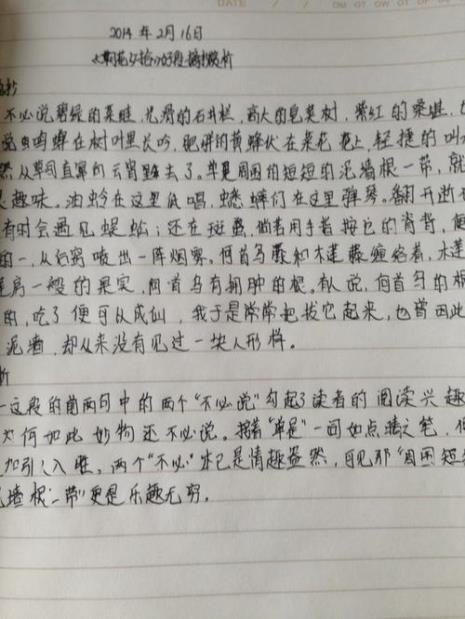 DATE / /
2014 年 2月16日
《朝花夕拾》好段摘抄赏析
不必说碧绿的菜畦,光滑的石井栏,高大的皂荚树,紫红的桑椹,
说鸣蝉在树叶里长吟,肥胖的黄蜂伏在菜花花上,轻捷的叫
然从草间直窜向云霄里去了。单是周围的短短的泥墙根一带,就
趣味,油蛉在这里低唱,蟋蟀们在这里弹琴。翻开断
有时会遇见蜈蚣;还有斑蝥,倘若用手指按它的脊背,便
的一,从后窍喷出一阵烟雾,何首乌藤和木莲藤缠络着,木莲
房一般的果实,何首乌有拥肿的根。有人说,何首乌的根
的,吃了便可以成仙,我于是常常把拔它起来,也曾因此
泥墙,却从来没有见过一块人形样。
析
一这段的前两句中的两个"不必说"勾起了读者的阅读兴趣
为何如此妙物还不必说。接着"单是"一词如点睛之笔,
加引人入胜。两个"不必"本已是情趣盎然,可见那"周围短
墙根一带"更是乐趣无穷。